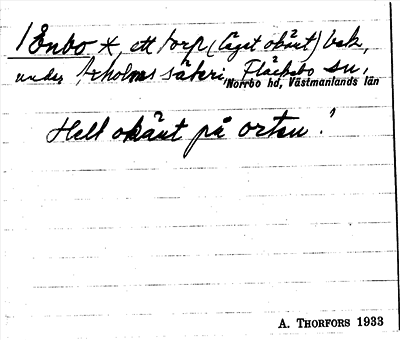 1 Enbo *, ett torp (läget okänt) bek,
under Axholms säteri, Fläckebo sn,
Norrbo hd, Västmanlands län
Helt okänt på orten!
A. THORFORS 1933